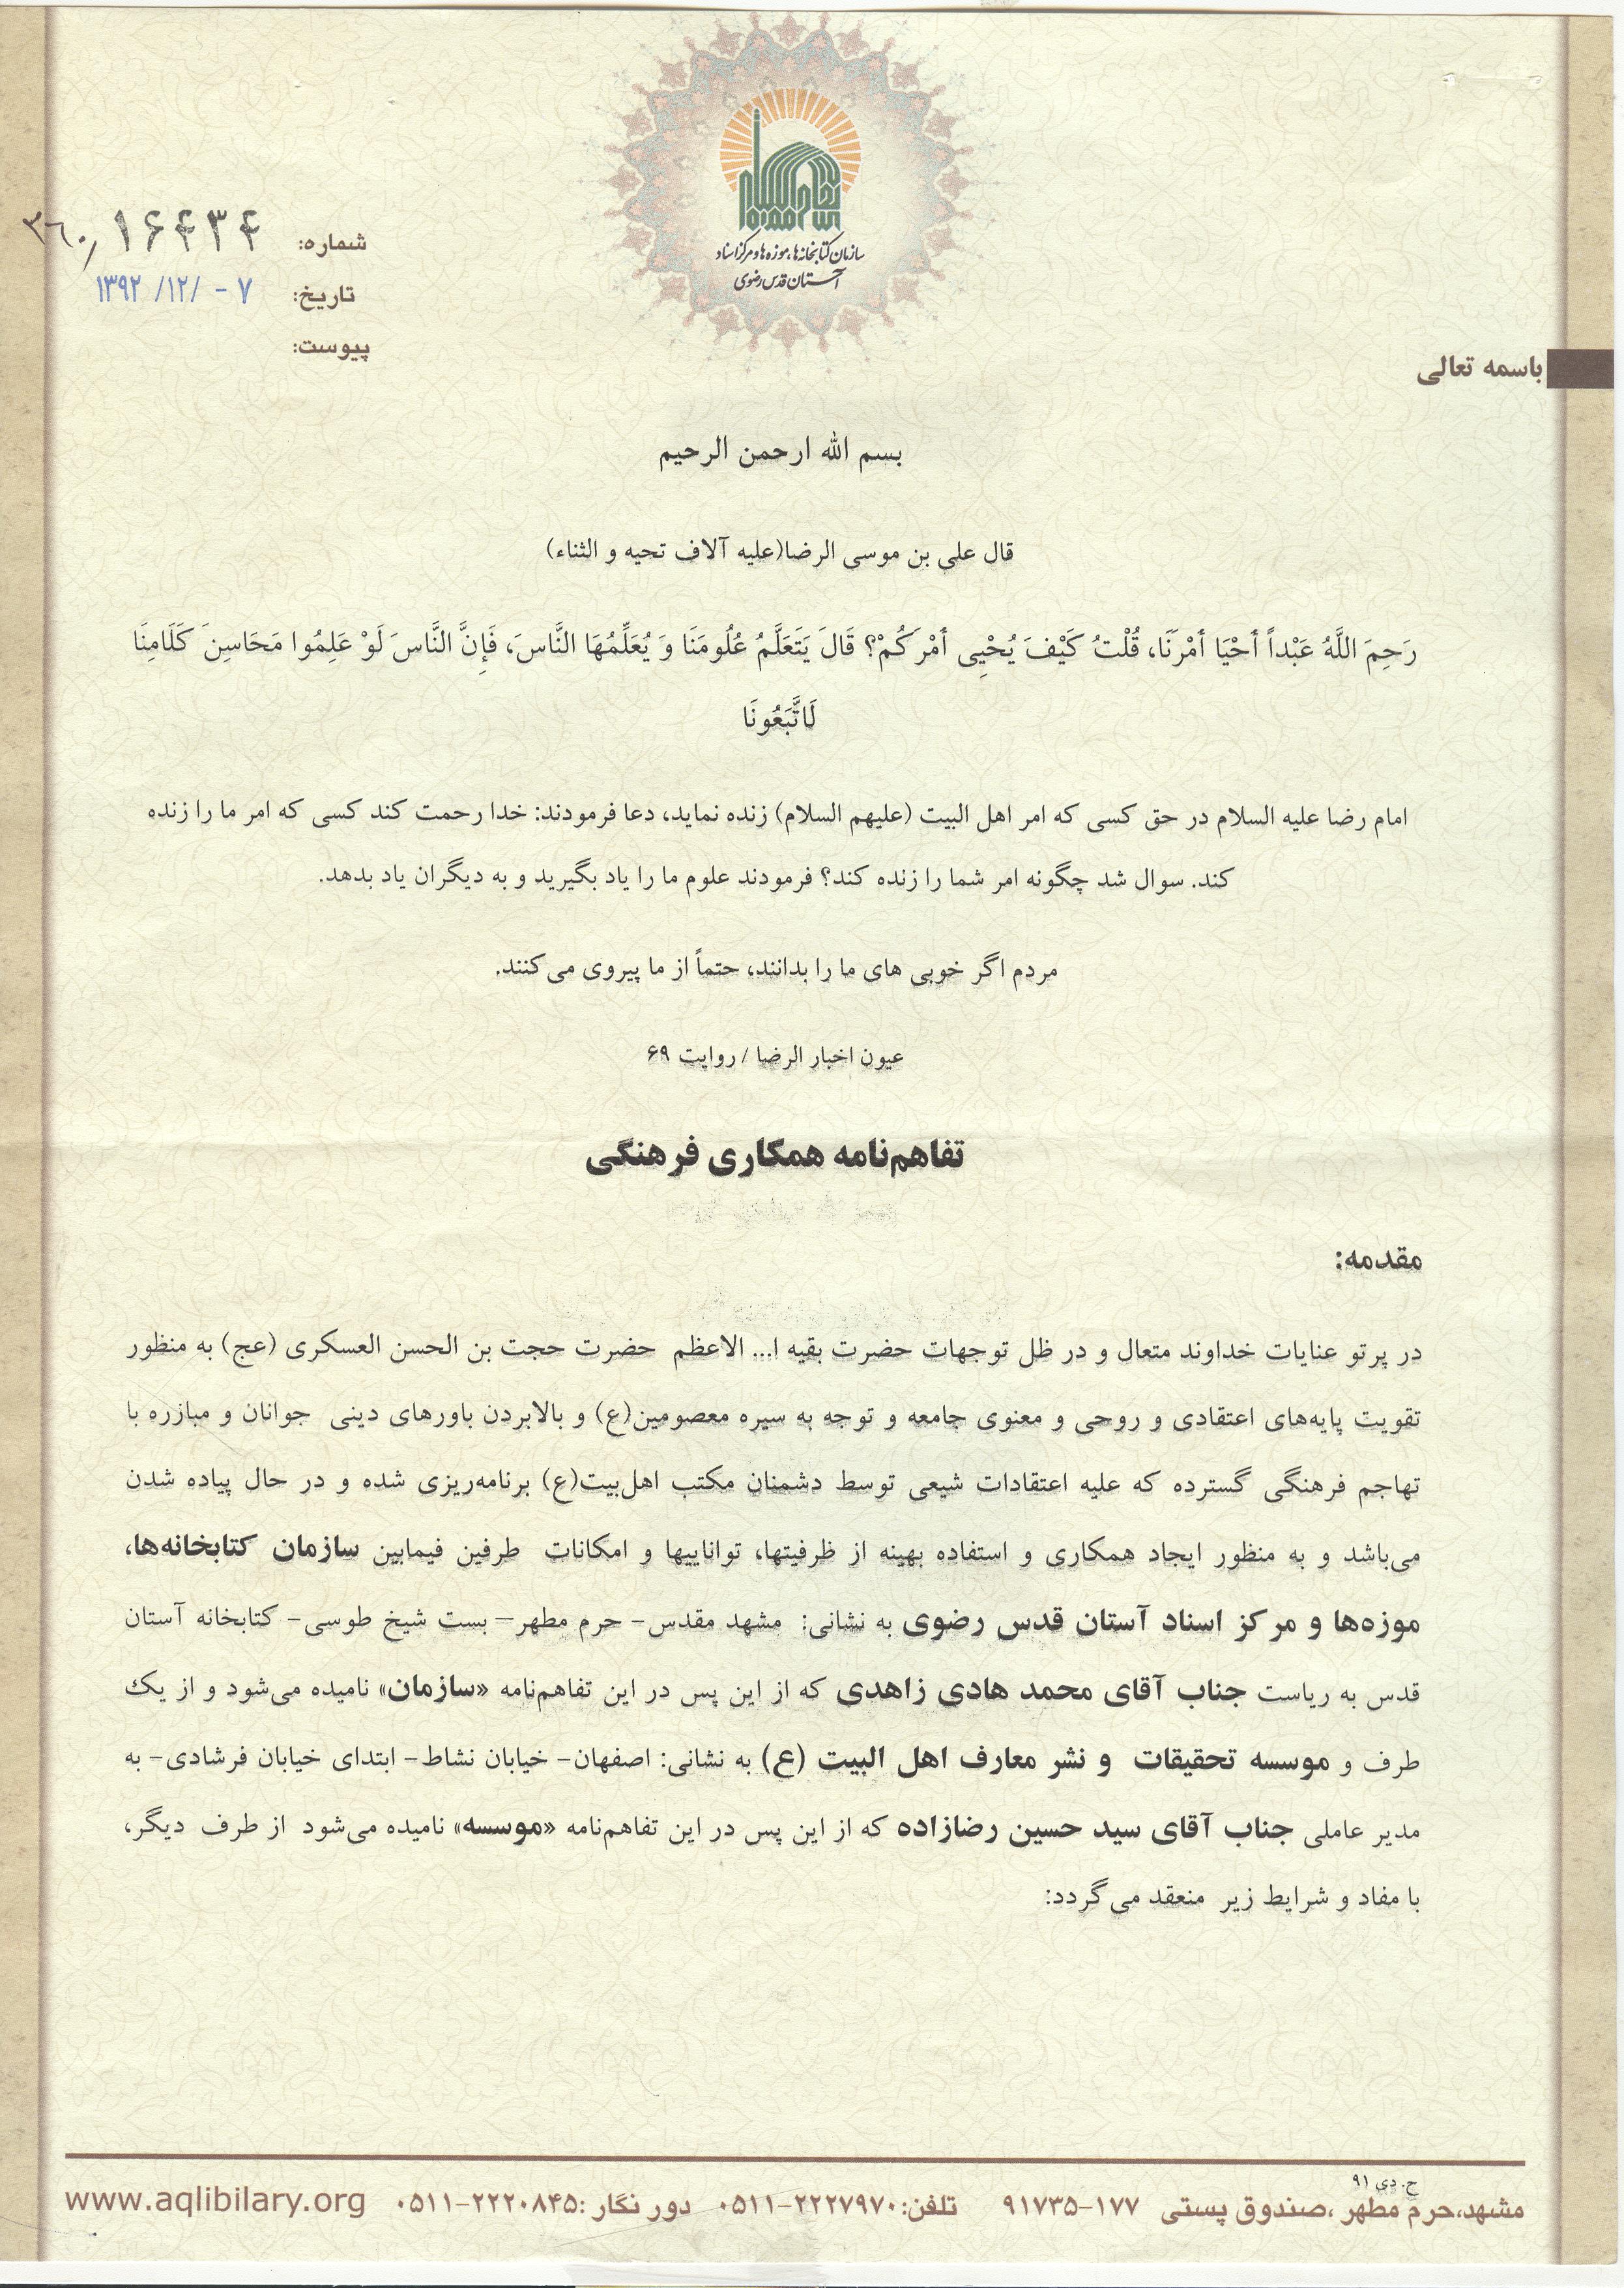 سازمان کتابخانه‌ها، موزه‌ها و مرکز اسناد
آستان قدس رضوی
شماره: ۳۶۰/۱۶۴۳۴
تاریخ: ۷ - /۱۲/ ۱۳۹۲
پیوست:
باسمه تعالی
بسم الله ارحمن الرحیم
قال علی بن موسی الرضا(علیه آلاف تحیه و الثناء)
رَحِمَ اللَّهُ عَبْداً أَحْيَا أَمْرَنَا، قُلْتُ كَيْفَ يُحْيِى أَمْرَكُمْ؟ قَالَ يَتَعَلَّمُ عُلُومَنَا وَ يُعَلِّمُهَا النَّاسَ، فَإِنَّ النَّاسَ لَوْ عَلِمُوا مَحَاسِنَ كَلَامِنَا
لَاتَّبَعُونَا
امام رضا علیه السلام در حق کسی که امر اهل البیت (علیهم السلام) زنده نماید، دعا فرمودند: خدا رحمت کند کسی که امر ما را زنده
کند. سوال شد چگونه امر شما را زنده کند؟ فرمودند علوم ما را یاد بگیرید و به دیگران یاد بدهد.
مردم اگر خوبی های ما را بدانند، حتماً از ما پیروی می‌کنند.
عیون اخبار الرضا / روایت ۶۹
تفاهم‌نامه همکاری فرهنگی
مقدمه:
در پرتو عنایات خداوند متعال و در ظل توجهات حضرت بقیه ا... الاعظم حضرت حجت بن الحسن العسکری (عج) به منظور
تقویت پایه‌های اعتقادی و روحی و معنوی جامعه و توجه به سیره معصومین(ع) و بالابردن باورهای دینی جوانان و مبازره با
تهاجم فرهنگی گسترده که علیه اعتقادات شیعی توسط دشمنان مکتب اهل‌بیت(ع) برنامه‌ریزی شده و در حال پیاده شدن
می‌باشد و به منظور ایجاد همکاری و استفاده بهینه از ظرفیتها، تواناییها و امکانات طرفین فیمابین سازمان کتابخانه‌ها،
موزه‌ها و مرکز اسناد آستان قدس رضوی به نشانی: مشهد مقدس- حرم مطهر– بست شیخ طوسی- کتابخانه آستان
قدس به ریاست جناب آقای محمد هادی زاهدی که از این پس در این تفاهم‌نامه «سازمان» نامیده می‌شود و از یک
طرف و موسسه تحقیقات و نشر معارف اهل البیت (ع) به نشانی: اصفهان- خیابان نشاط- ابتدای خیابان فرشادی- به
مدیر عاملی جناب آقای سید حسین رضازاده که از این پس در این تفاهم‌نامه «موسسه» نامیده می‌شود از طرف دیگر،
با مفاد و شرایط زیر منعقد می‌گردد:
ح. دی ۹۱
مشهد،حرم مطهر ،صندوق پستی ۱۷۷-۹۱۷۳۵ تلفن:۲۲۲۷۹۷۰-۰۵۱۱ دور نگار :۲۲۲۰۸۴۵-۰۵۱۱ www.aqlibilary.org